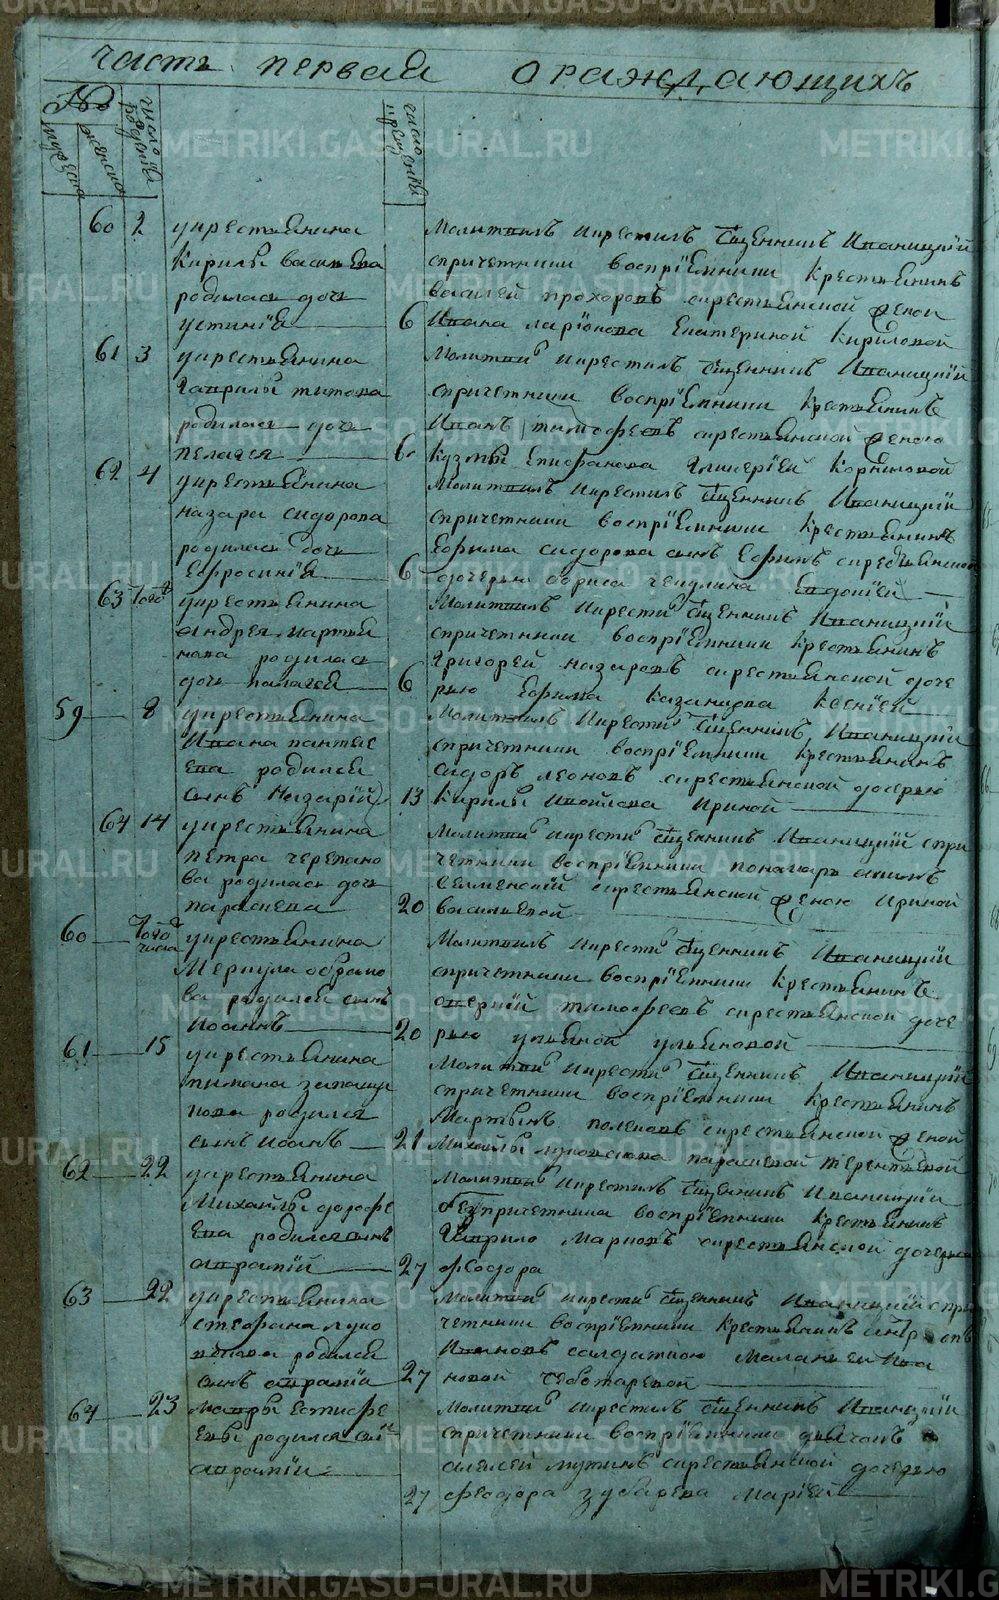 часть первая о раждающихъ
№
мужеска
женска
число рожденія
число крещенія
60 2 укрестьянина
Кирилы васильева
родилась дочь
устинія
6
Молитвилъ икрестилъ священникъ Иваницкій
спричетники воспріемники крестьянинъ
василей прохоровъ икрестьянской женой
Ивана ларіонова Екатериной Кириловой
61 3 укрестьянина
Гаврилы титова
родилась дочь
пелагея
6
Молитви икрестилъ священникъ Иваницкій
спричетники воспріемники крестьянинъ
Иванъ тимофеевъ скрестьянской женою
Кузмы Епифанова Гликеріей Корниловой
62 4 укрестьянина
назара сидорова
родилась дочь
Ефросинія
6
Молитвилъ икрестилъ священникъ Иваницкій
спричетники воспріемники крестьянинъ
Ефима сидорова сынъ Ефимъ скрестьянской
дочерью бориса Евдокіей
63 того укрестьянина
андрея мартем
нова родилась
дочь палагея
6
Молитвилъ икрести священникъ Иваницкій
спричетники воспріемники крестьянинъ
григорей назаровъ скрестьянской доче
рью Ефима казанцова Ксеніей
59 8 укрестьянина
Ивана пантеле
ева родился
сынъ Назарій
13
Молитвилъ икрести священникъ Иваницкій
спричетники воспріемники крестьянинъ
сидоръ леоновъ скрестьянской дочерью
Кирилы Ириной
64 14 укрестьянина
петра черепано
ва родилась дочь
параскева
20
Молитви икрести священникъ Иваницкій спри
четники воспріемники понамарь
скрестьянской женою Ириной
васильевой
60 того числа укрестьянина
Меркула абрамо
ва родился сынъ
Иоаннъ
20
Молитвилъ икрести священникъ Иваницкій
спричетники воспріемники крестьянинъ
аверкій тимофеевъ скрестьянской доче
рью ульяной ульяновой
61 15 укрестьянина
родился
сынъ Иоанъ
21
Молитви икрести священникъ Иваницкій
спричетники воспріемники крестьянинъ
Мартынъ скрестьянской женой
Михайлы парасковой терентьевой
62 22 укрестьянина
Михайлы дорофе
ева родился сынъ
авраамій
27
Молитви икрестилъ священникъ Иваницкій
безпричетника воспріемники крестьянинъ
Гаврило скрестьянской дочерью
феодора
63 22 укрестьянина
стефана
родился
сынъ аврамій
27
Молитви икрести священникъ Иваницкій спри
четники воспріемники крестьянинъ
Ивановъ солдаткою Маланьей Ива
новой чеботаревой
64 23 Мавры Естифе
евы родился сынъ
аврамій
27
Молитви икрестилъ священникъ Иваницкій
спричетники воспріемники дьячокъ
алексей скрестьянской дочерью
феодора зубарева Маріей
METRIKI.GASO-URAL.RU